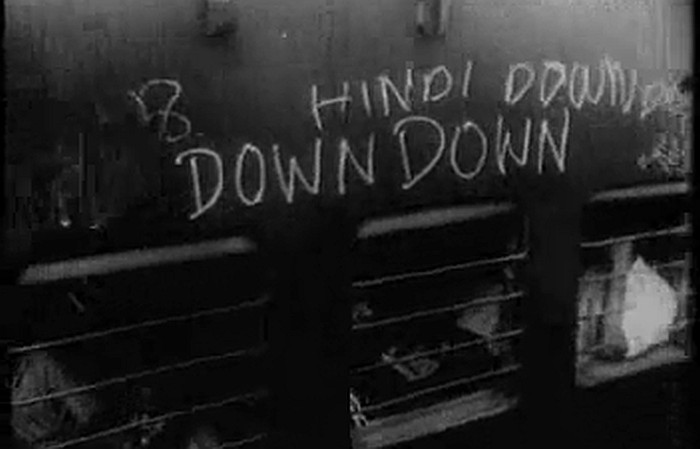 HINDI DOWN
DOWN DOWN